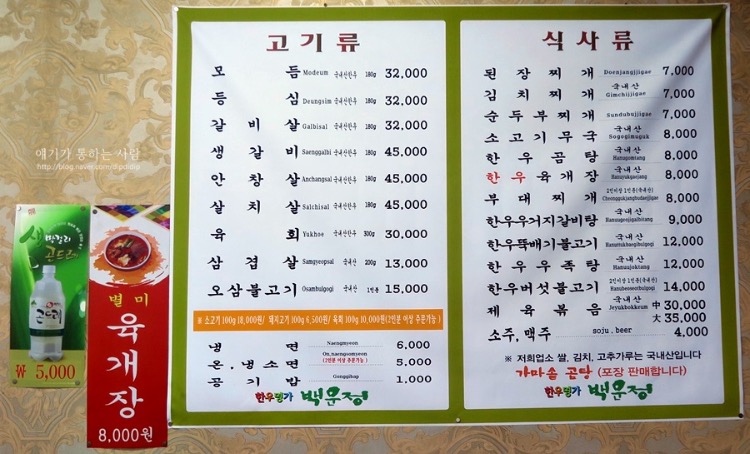 고기류
모듬 Modeum 국내산한우 180g 32,000
등심 Deungsim 국내산한우 180g 32,000
갈비살 Galbisal 국내산한우 180g 32,000
생갈비 Saenggalbi 국내산한우 180g 45,000
안창살 Anchangsal 국내산한우 180g 45,000
살치살 Salchisal 국내산한우 180g 45,000
육회 Yukhoe 국내산한우 300g 30,000
삼겹살 Samgyeopsal 국내산 200g 13,000
오삼불고기 Osambulgogi 국내산 1인분 15,000
※ 소고기 100g 18,000원/ 돼지고기 100g 6,500원/ 육회 100g 10,000원(2인분 이상 주문가능)
냉면 Naengmyeon 6,000
온.냉소면 (2인분 이상 주문가능) 5,000
공기밥 Gonggibap 1,000
한우명가 백운정
식사류
된장찌개 Doenjangjjigae 7,000
김치찌개 국내산 Gimchijjigae 7,000
순두부찌개 Sundubujjigae 7,000
소고기무국 국내산 Sogogimuguk 8,000
한우곰탕 국내산 Hanugomtang 8,000
한우육개장 국내산 8,000
부대찌개 8,000
한우우거지갈비탕 국내산 9,000
한우뚝배기불고기 국내산 12,000
한우우족탕 국내산 Hanuujoktang 12,000
한우버섯불고기 14,000
제육볶음 국내산 Jeyukbokkeum 中 30,000
大 35,000
소주, 맥주 soju . beer 4,000
※ 저희업소 쌀, 김치, 고추가루는 국내산입니다
가마솥 곰탕 (포장 판매합니다)
한우명가 백운정
얘기가 통하는 사람
생 막걸리
곤드레
₩ 5,000
별미
육개장
8,000원